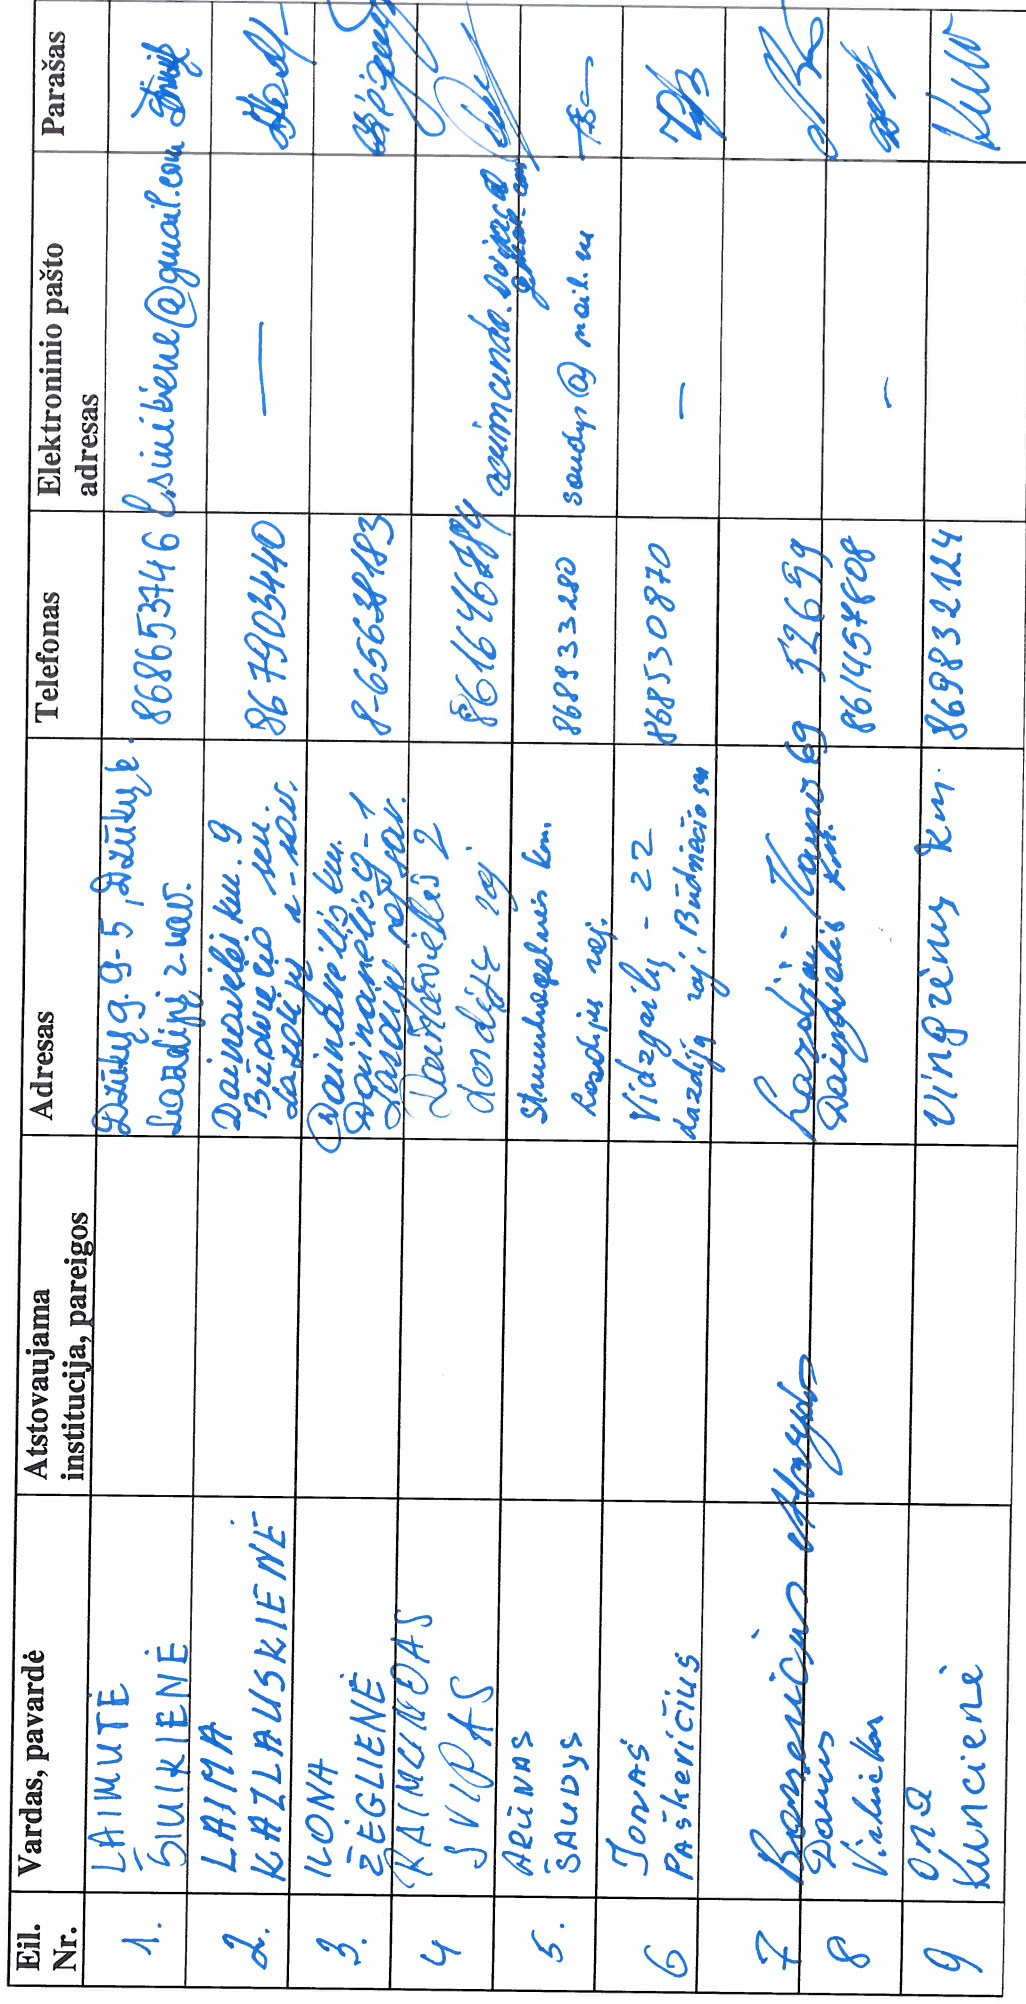 Eil. Nr. Vardas, pavardė Atstovaujama institucija, pareigos Adresas Telefonas Elektroninio pašto adresas Parašas
1. LAIMUTĖ ŠIUIKIENĖ Dzūkų g. 9-5, Dzūkų k. Lazdijų r. sav. 868653746 l.siuikiene@gmail.com
2. LAIMA KAZLAUSKIENĖ Dainavėlės km. 9 Būdviečio sen. Lazdijų r-sav. 867903440 —
3. ILONA ŽĖGLIENĖ Dainavėlės km. 9-1 Lazdijų raj. sav. 8-65638183
4 RAIMUNDAS SVIPAS 2 Lazdijų raj 861646784
5. ARŪNAS ŠAUDYS km. Lazdijų raj. 868933280 saudys@mail.ru
6 Jonas Paškevičius Vidzgailų - 22 Lazdijų raj. Būdviečio sen 868530870 —
7 Lazdijai 69 52699
8 Dainavėlės km. 861457808 —
9 Ona Kuncienė Vingrėnų km. 869832124